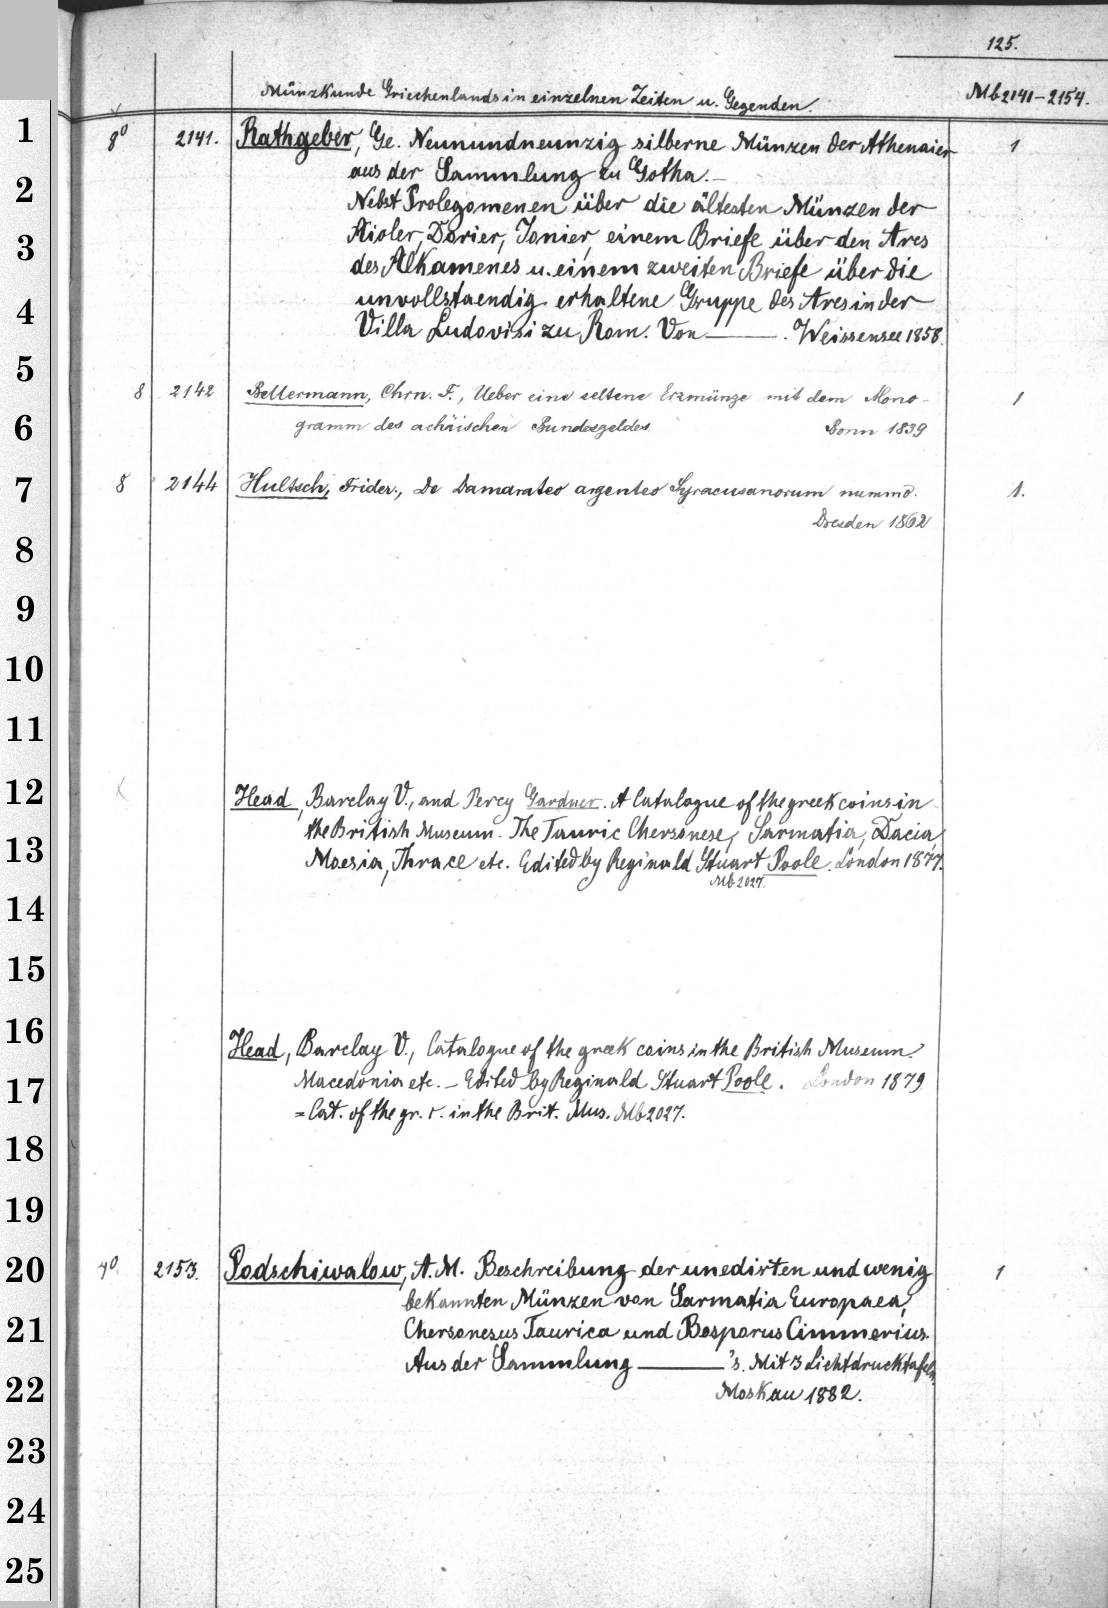 125.
Münzkunde Griechenlands in einzelnen Zeiten u. Gegenden. Mb 2141–2154.
1 8° 2141. Rathgeber, Ge. Neunundneunzig silberne Münzen der Athenaier 1
2 aus der Sammlung zu Gotha.–
Nebst Prolegomenen über die ältesten Münzen der
3 Aioler, Dorier, Ionier, einem Briefe über den Ares
des Alkamenes u. einem zweiten Briefe über die
4 unvollstaendig erhaltene Gruppe des Ares in der
Villa Ludovisi zu Rom. Von ——. Weissensee 1858.
5 8 2142 Bellermann, Chrn. F., Ueber eine seltene Erzmünze mit dem Mono- 1
6 gramm des achäischen Bundesgeldes Bonn 1839
7 8 2144 Hultsch, Frider., De Damarateo argenteo Syracusanorum nummo. 1.
8 Dresden 1862
9
10
11
12 Head, Barclay V., and Percy Gardner. A Catalogue of the greek coins in
the British Museum. The Tauric Chersonese, Sarmatia, Dacia,
13 Moesia, Thrace etc. Edited by Reginald Stuart Poole. London 1877.
Mb 2027.
14
15
16 Head, Barclay V., Catalogue of the greek coins in the British Museum.
17 Macedonia etc. – Edited by Reginald Stuart Poole. London 1879
= Cat. of the gr. c. in the Brit. Mus. Mb 2027.
18
19
20 4° 2153. Podschiwalow, A. M. Beschreibung der unedirten und wenig 1
bekannten Münzen von Sarmatia Europaea,
21 Chersonesus Taurica und Bosporus Cimmerius.
Aus der Sammlung ——'s. Mit 3 Lichtdrucktafeln.
22 Moskau 1882.
23
24
25